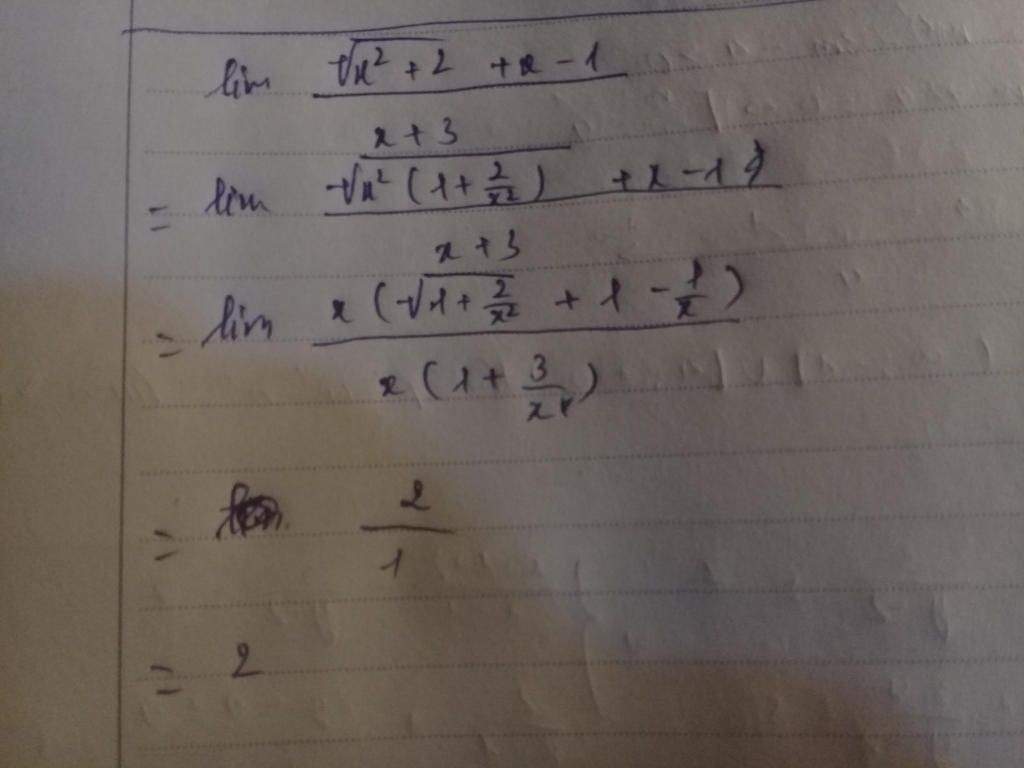 lim (√(x² + 2) + x - 1) / (x + 3)
= lim (√(x² (1 + 2/x²)) + x - 1) / (x + 3)
= lim x (√(1 + 2/x²) + 1 - 1/x) / x (1 + 3/x)
= 2/1
= 2